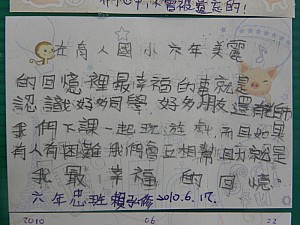 在育人國小六年美麗
的回憶裡最幸福的事就是
認識好多同學 好多朋友還有老師
我們下課一起玩遊戲,而且如果
有人有困難我們會互相幫
我最幸福的回憶。
六年忠班 2010.6.17.
2010 06 22